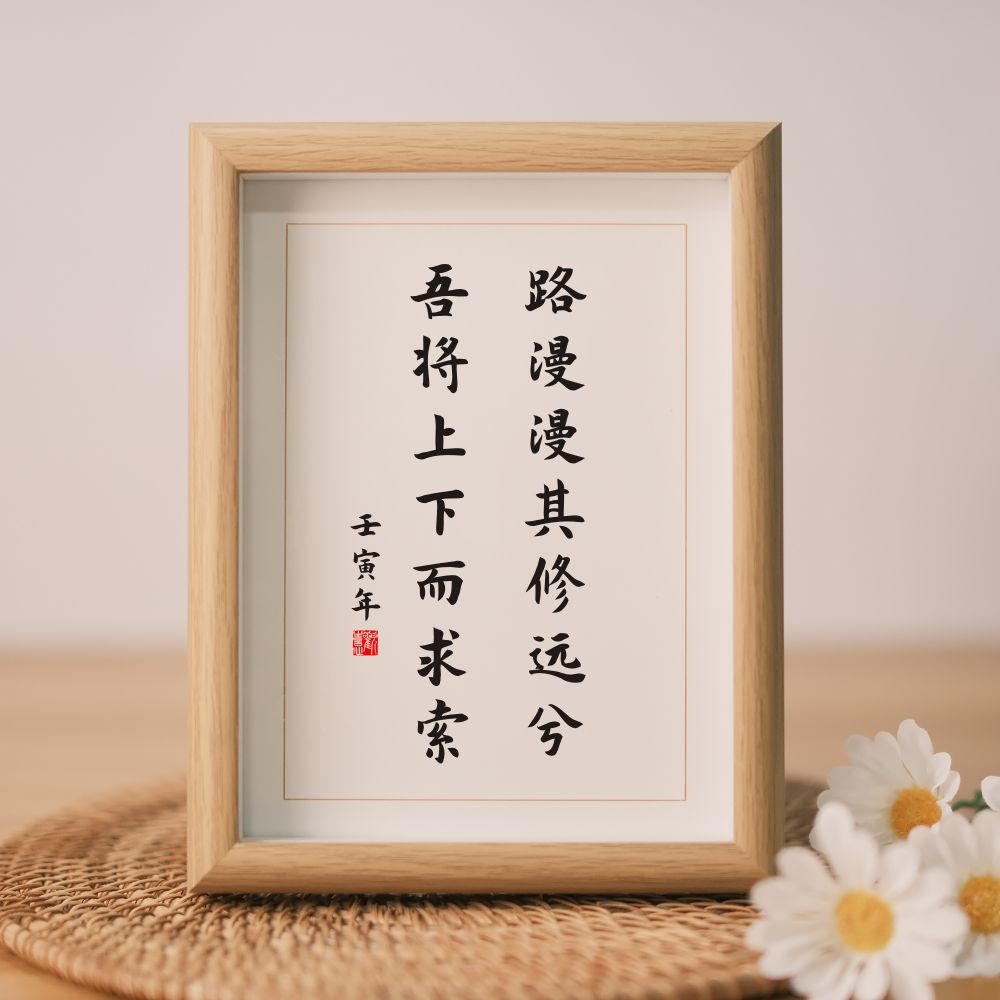 路漫漫其修远兮
吾将上下而求索
壬寅年